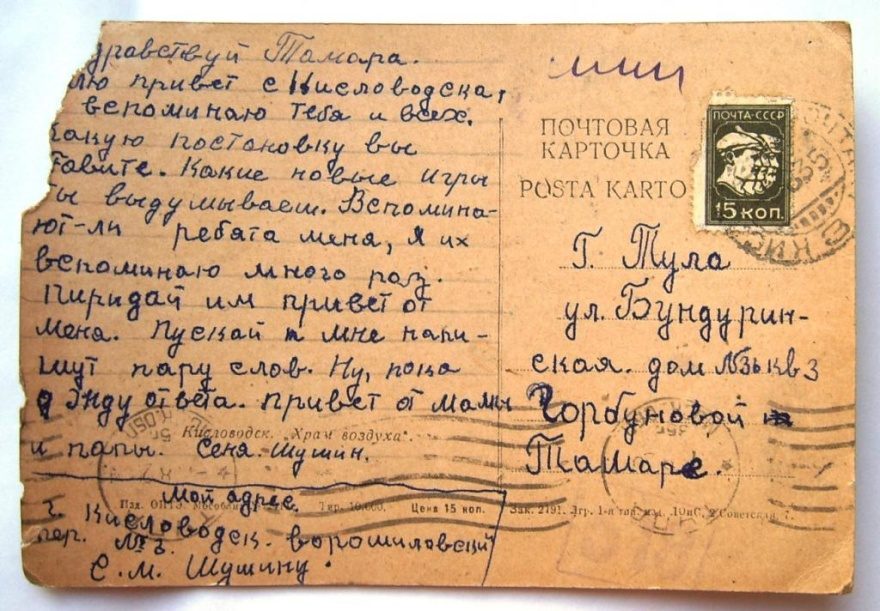 дравствуй Тамара.
лю привет с Кисловодска,
вспоминаю тебя и всех.
Какую постановку вы
ставите. Какие новые игры
ты выдумываеш. Вспомина-
ют-ли ребята меня, я их
вспоминаю много раз.
Пиридай им привет от
меня. Пускай мне напи-
шут пару слов. Ну, пока
Жду ответа. Привет от мамы
и папы. Сеня. Шушин.
Кисловодск. „Храм воздуха".
Мой адрес.
г. Кисловодск. Ворошиловский
пер. №
С. М. Шушину.
Изд. ОПТЭ. Тир. 10.000. Цена 15 коп.
Зак. 2191. 2 Советская, 7.
ПОЧТОВАЯ
КАРТОЧКА
POSTA KARTO
ПОЧТА-СССР
15 КОП.
Г. Тула
ул. Бундурин-
ская. дом кв 3
Горбуновой
Тамаре.